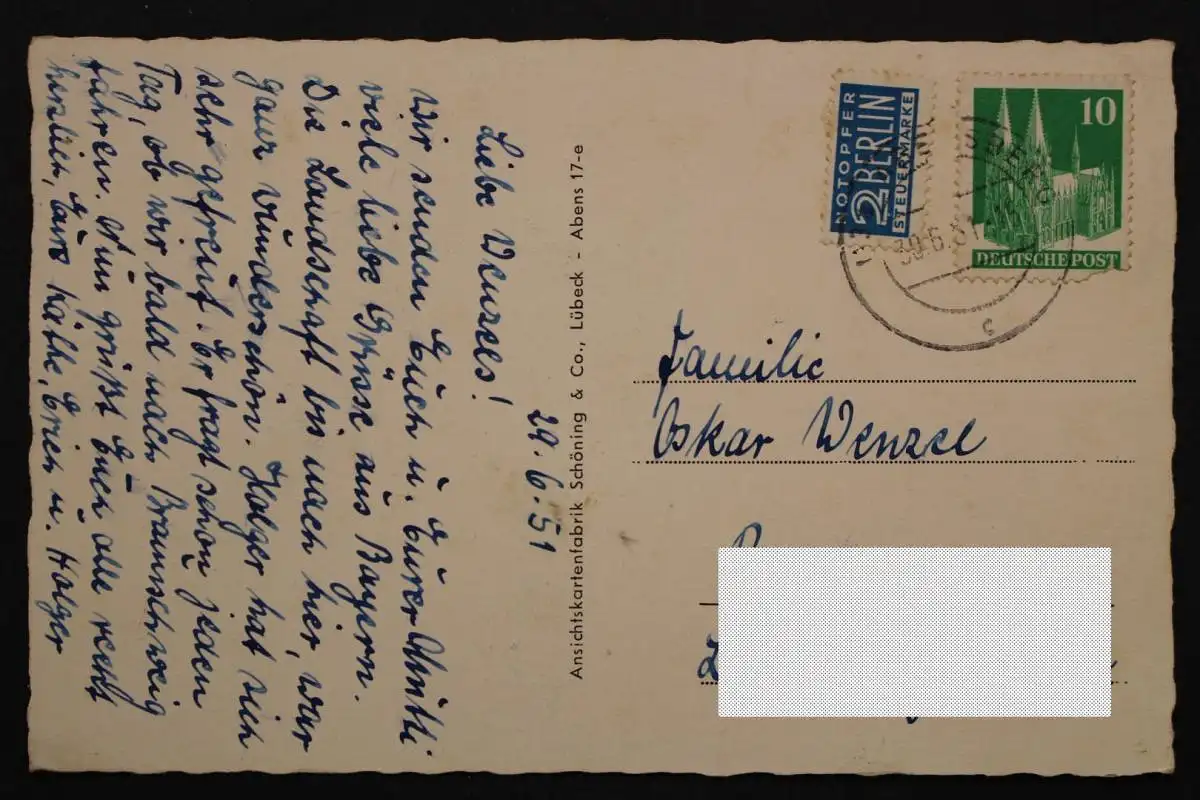 29.6.51
Liebe Wenzels!
Wir senden Euch u. Eurer Mutti
viele liebe Grüsse aus Bayern.
Die Landschaft bis nach hier, war
ganz wunderschön. Holger hat sich
sehr gefreut. Er fragt schon jeden
Tag, ob wir bald nach Braunschweig
fahren. Nun grüßt Euch alle recht
herzlich, Eure Käthe, Erich u. Holger
Ansichtskartenfabrik Schöning & Co., Lübeck - Abens 17-e
NOTOPFER
2 BERLIN
STEUERMARKE
10
DEUTSCHE POST
30.6.51
c
Familie
Oskar Wenzel